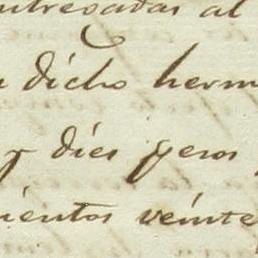 entregadas al
dicho herm
y dies pesos
cientos veinte